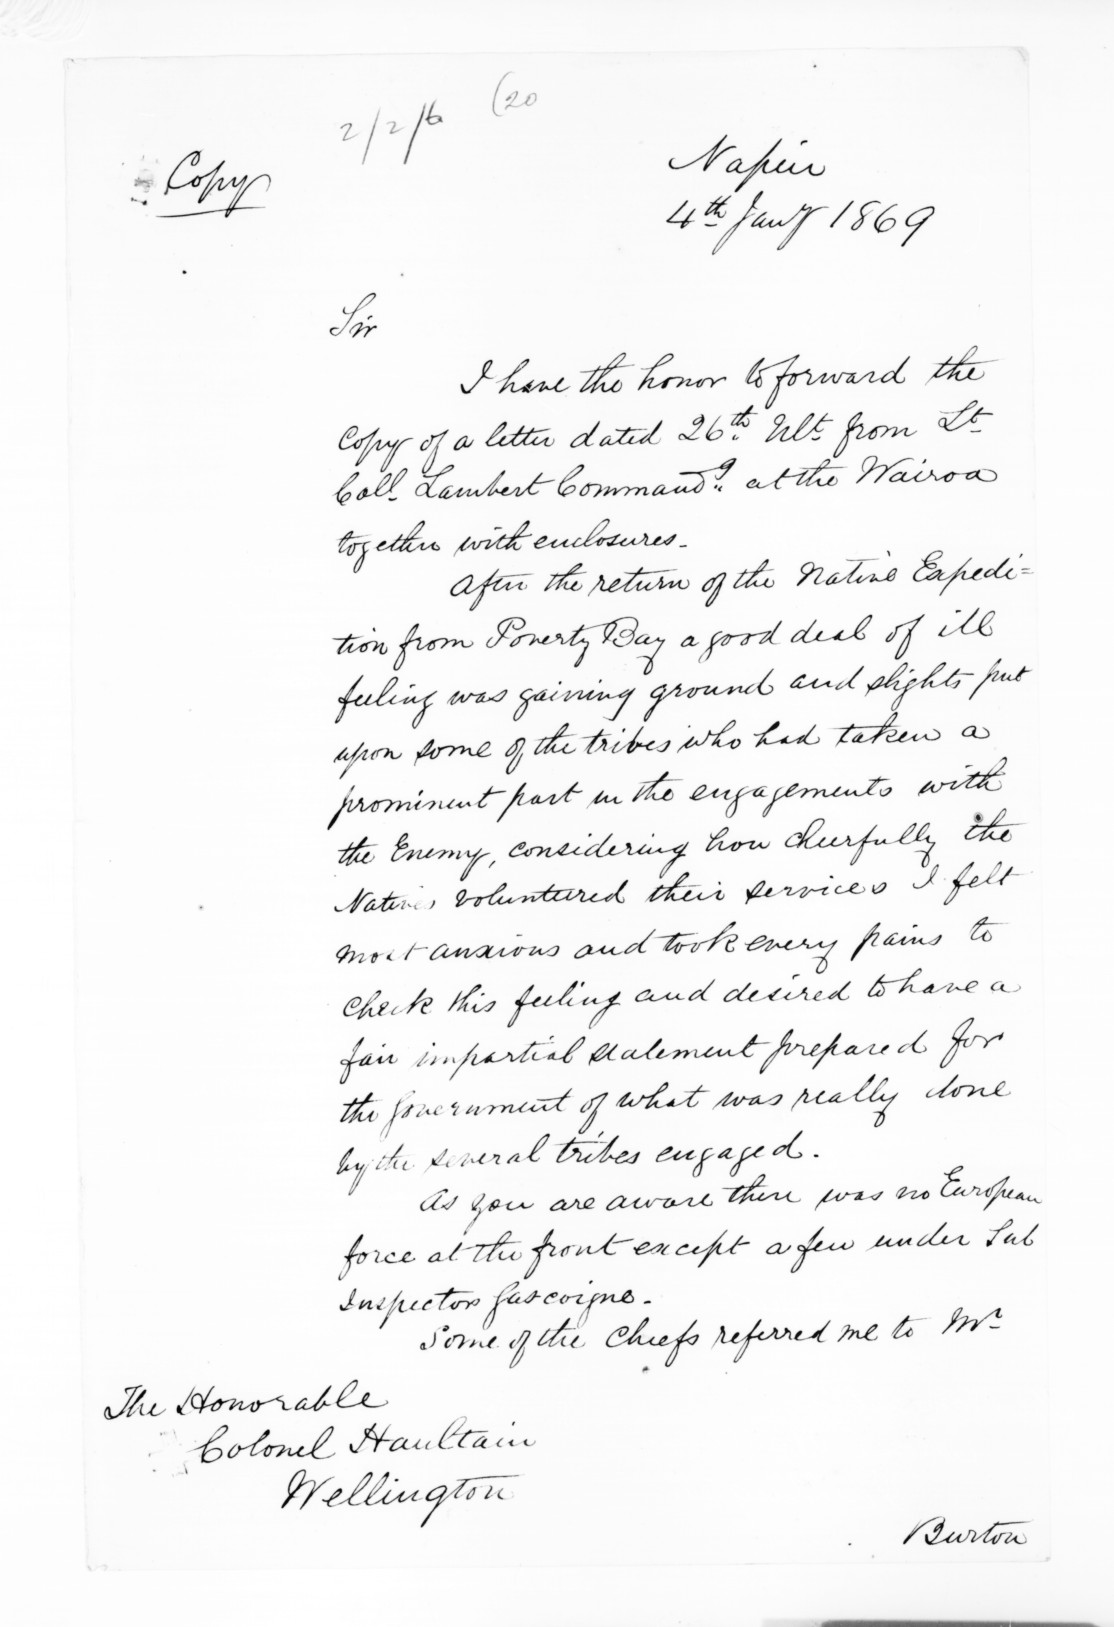 2/2/6 (20
Copy
Napier
4th Jany 1869
Sir
I have the honor to forward the
Copy of a letter dated 26th Ult from Lt
Coll Lambert Commandg at the Wairoa
together with enclosures.
After the return of the Native Expedi=
tion from Poverty Bay a good deal of ill
feeling was gaining ground and slights put
upon some of the tribes who had taken a
prominent part in the engagements with
the Enemy, considering how cheerfully the
Natives volunteered their services I felt
most anxious and took every pains to
check this feeling and desired to have a
fair impartial statement prepared for
the Government of what was really done
by the several tribes engaged.
As you are aware there was no European
force at the front except a few under Sub
Inspector Gascoigne.
Some of the Chiefs referred me to Mr
The Honorable
Colonel Haultain
Wellington
Burton